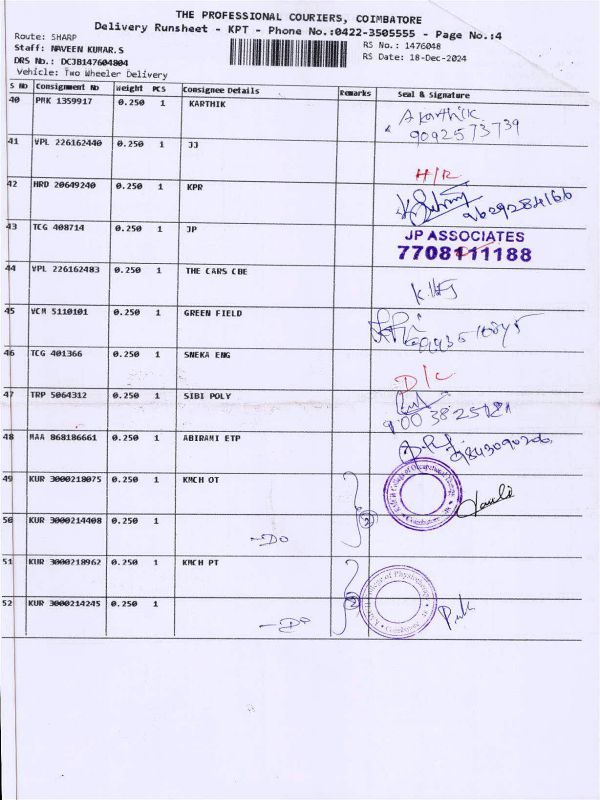 THE PROFESSIONAL COURIERS, COIMBATORE
Delivery Runsheet - KPT - Phone No.:0422-3505555 - Page No.:4
Route: SHARP
RS No.: 1476048
Staff: NAVEEN KUMAR.S
RS Date: 18-Dec-2024
DRS No.: DCJB147604804
Vehicle: Two Wheeler Delivery
S No Consignment No Weight PCS Consignee Details Remarks Seal & Signature
40 PMK 1359917 0.250 1 KARTHIK
A Karthik
9092573739
41 VPL 226162440 0.250 1 JJ
H/R
42 HRD 20649240 0.250 1 KPR
9629284166
43 TCG 408714 0.250 1 JP
JP ASSOCIATES
7708111188
44 VPL 226162483 0.250 1 THE CARS CBE
45 VCM 5110101 0.250 1 GREEN FIELD
46 TCG 401366 0.250 1 SNEKA ENG
D/C
47 TRP 5064312 0.250 1 SIBI POLY
48 MAA 868186661 0.250 1 ABIRAMI ETP
9843090206
49 KUR 3000218075 0.250 1 KMCH OT
KMCH College of Occupational Therapy
Coimbatore
50 KUR 3000214408 0.250 1
2
-Do
51 KUR 3000218962 0.250 1 KMCH PT
College of Physiotherapy
Coimbatore
52 KUR 3000214245 0.250 1
2
-Do